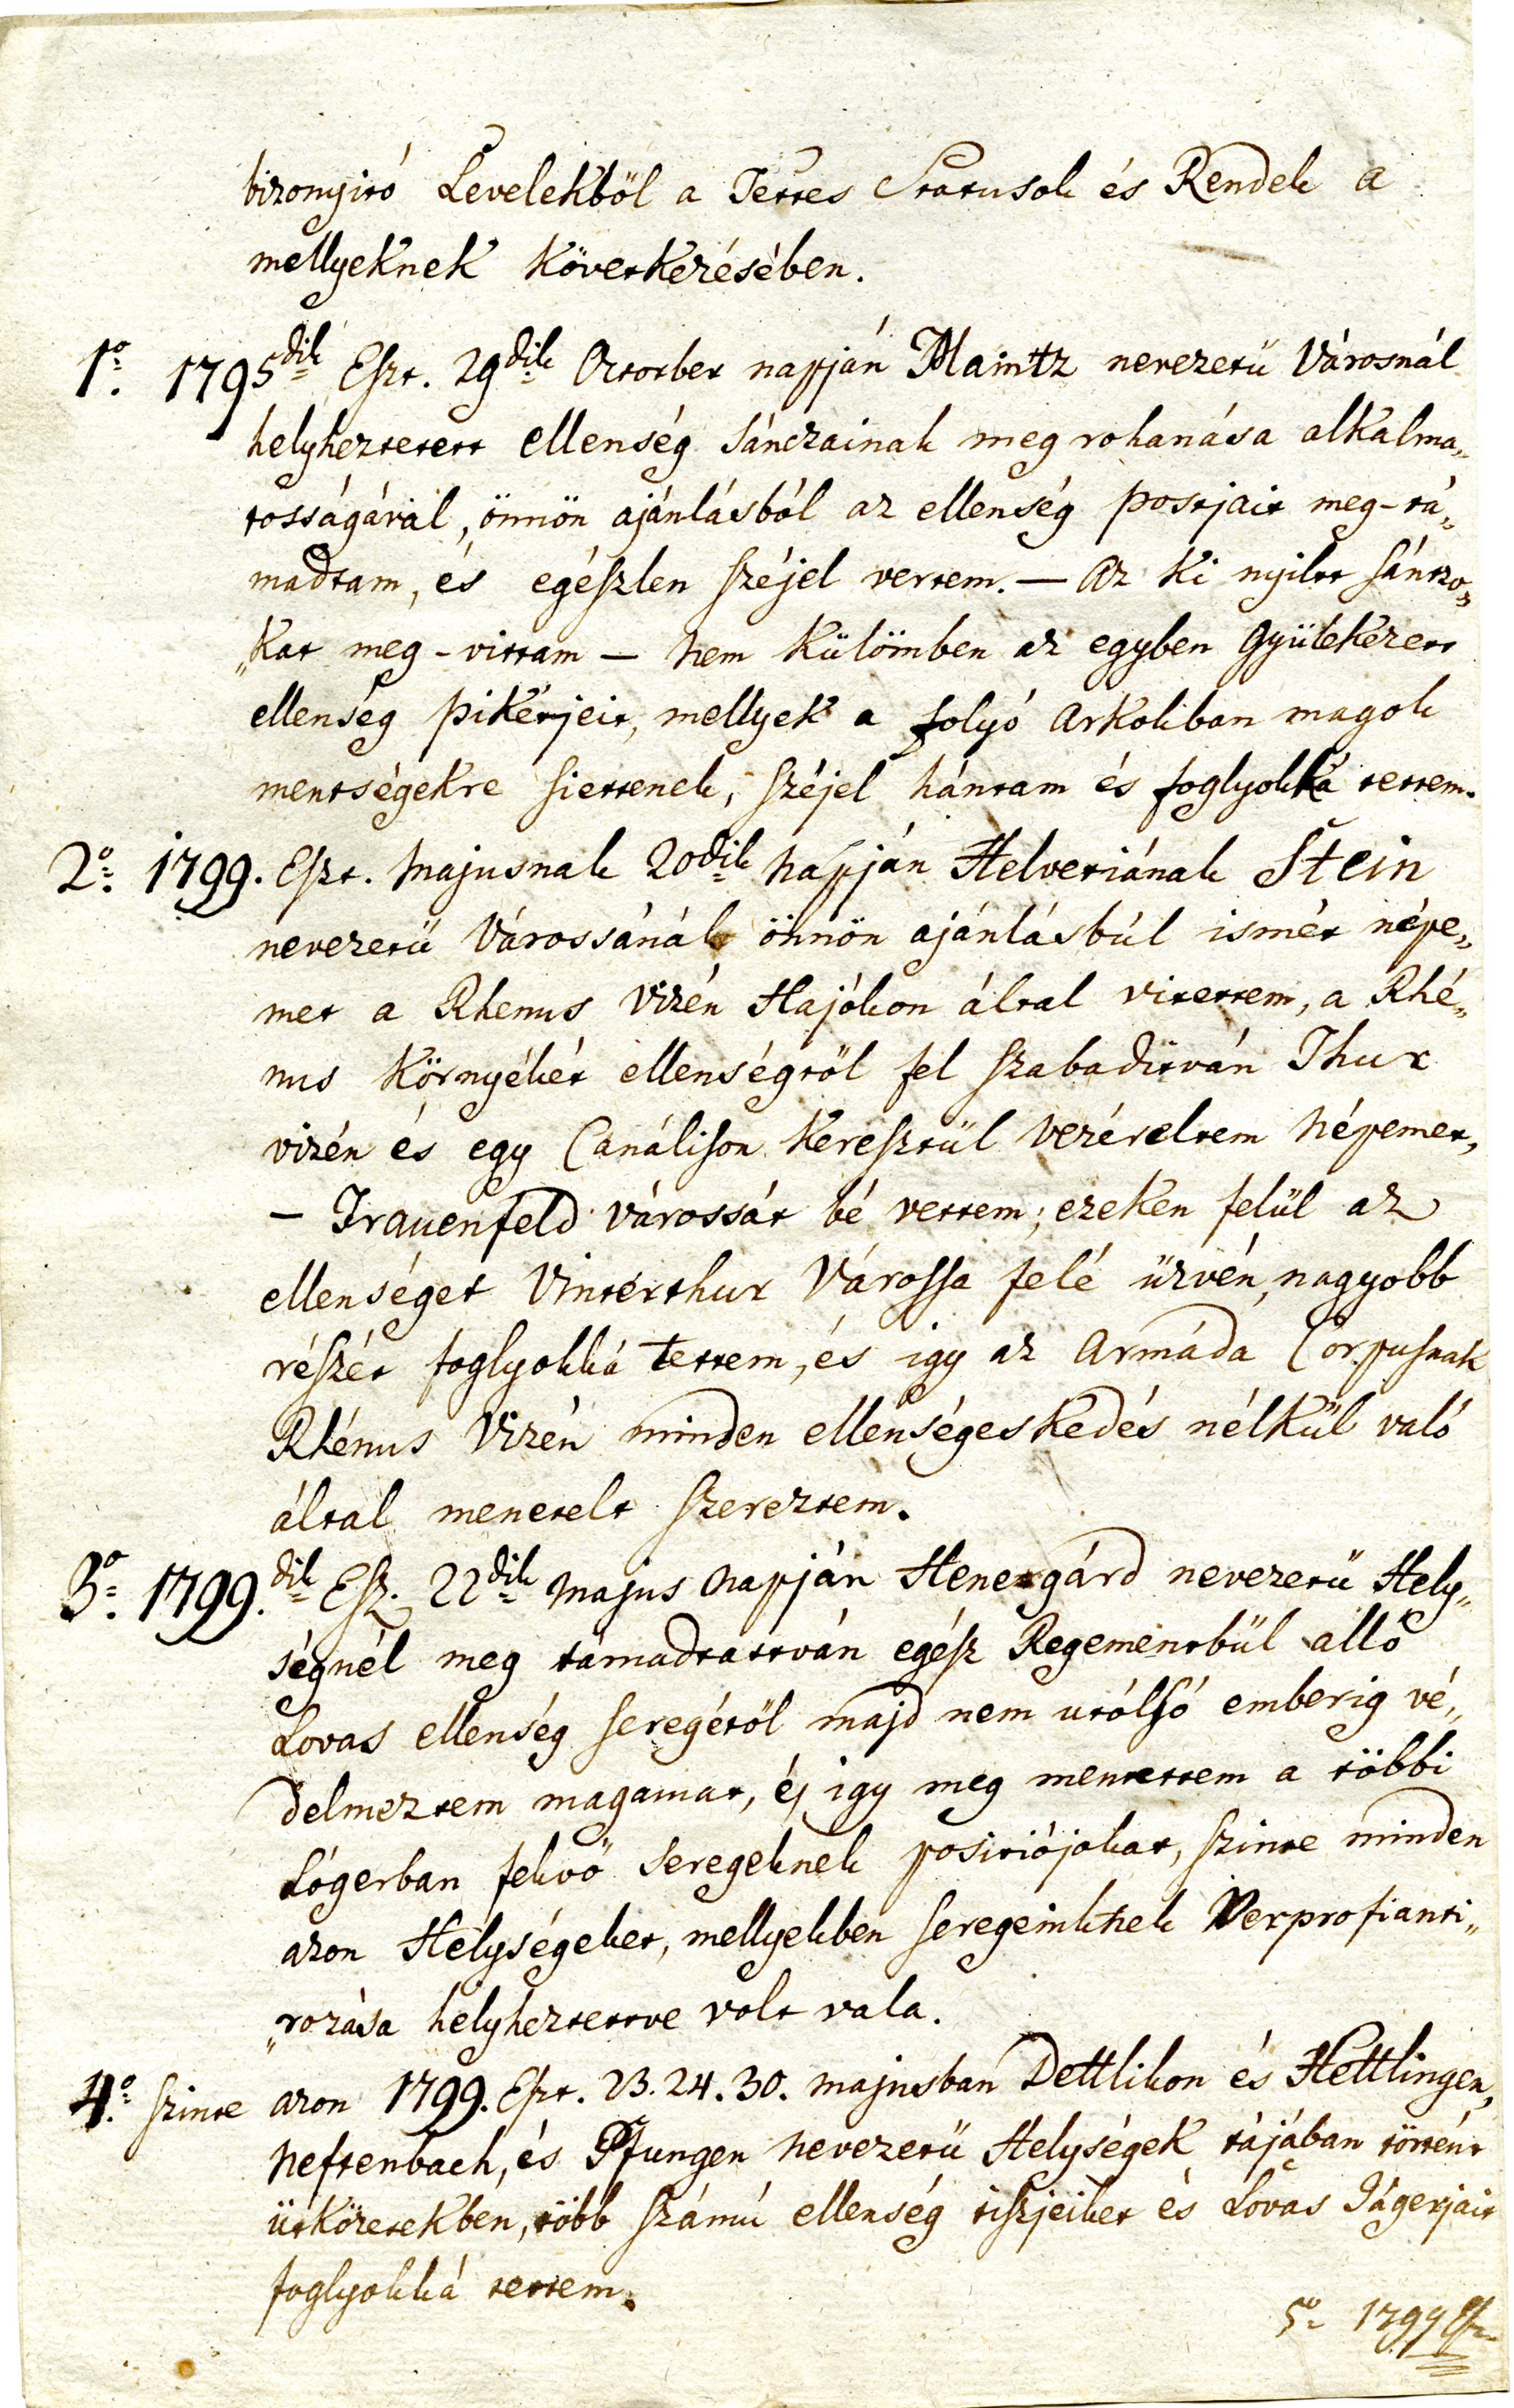 bizonyitó Levelekböl a Tettes Statusok és Rendek a
mellyeknek Következésében.
1o. 1795dik Eszt. 29dik October napján Maintz nevezetü Városnál
helyheztetett ellenség sánczainak meg rohanása alkalma„
tosságával, önnön ajánlásból az ellenség postjait meg-tá„
madtam, és egészlen széjel vertem. — Az ki nyilt sántzo„
„kat meg-vittam — nem külömben az egyben gyülekezett
ellenség pikétjeit, mellyek a folyó árkokban magok
mentségekre siettenek, széjel hántam és foglyokká tettem.
2o. 1799. Eszt. Majusnak 20dik napján Helvetiának Stein
nevezetü Várossánál önnön ajánlásbúl ismét népe„
met a Rhenus Vizén Hajókon által vitettem, a Rhé„
nus Környékét ellenségtöl fel szabaditván Thur
vizén és egy Canálison keresztül vezéreltem népemet,
— Frauenfeld várossát bé vettem; ezeken felül az
ellenséget Vinterthur Várossa felé üzvén, nagyobb
részét foglyokká tettem, és igy az Armáda Corpusnak
Rhénus Vizén minden ellenségeskedés nélkül való
által menetelt szereztem.
3o. 1799.dik Esz. 22dik Majus napján Henegárd nevezetü Hely„
ségnél meg támadtattván egész Regementbül alló
Lovas ellenség seregétöl majd nem utólsó emberig vé„
delmeztem magamat, és igy meg mentettem a többi
Lógerban fekvö seregeknek positiójokat, szinte minden
azon Helységeket, mellyekben seregeinknek Verprofianti„
„rozása helyheztettve volt vala.
4o. szinte azon 1799. Eszt. 23. 24. 30. majusban Dettlikon és Hettlingen,
Neftenbach, és Pfungen nevezetü Helységek tájában történt
ütközetekben, több számú ellenség tiszjeiket és Lovas Jágerjait
foglyokká tettem.
5o 1799 Esz.